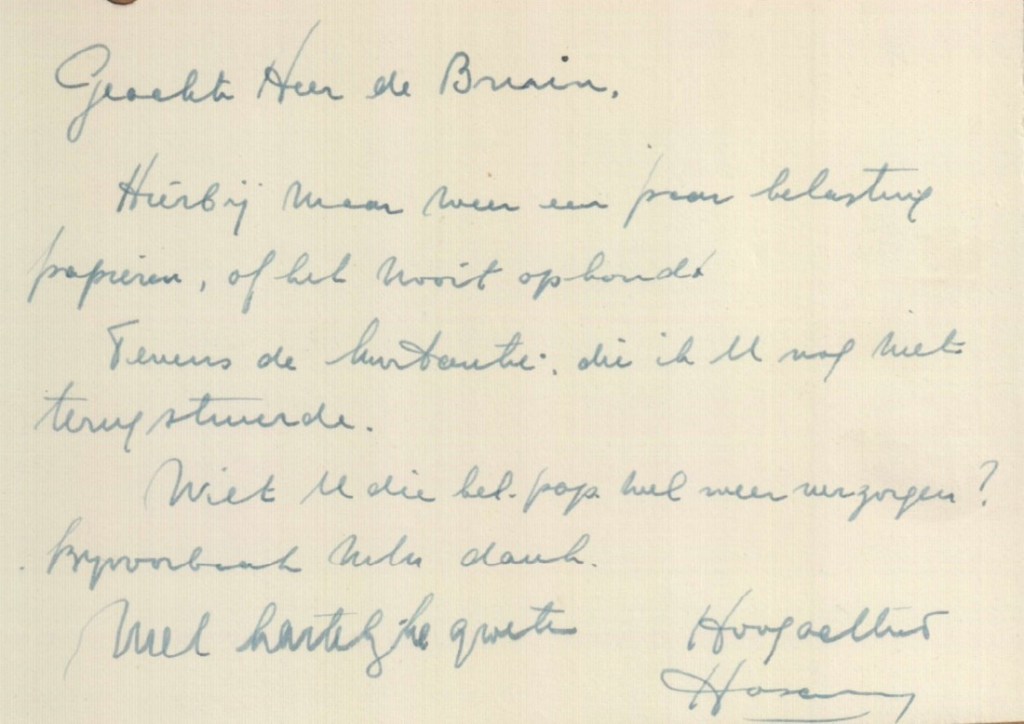 Geachte Heer de Bruin,
Hierbij maar weer een paar belasting
papieren, of het nooit ophoudt
Tevens de kwitantie, die ik U nog niet
terugstuurde.
Wilt U die bel. pap. wel weer verzorgen?
Bijvoorbaat veel dank.
Met hartelijke groeten Hoogachtend